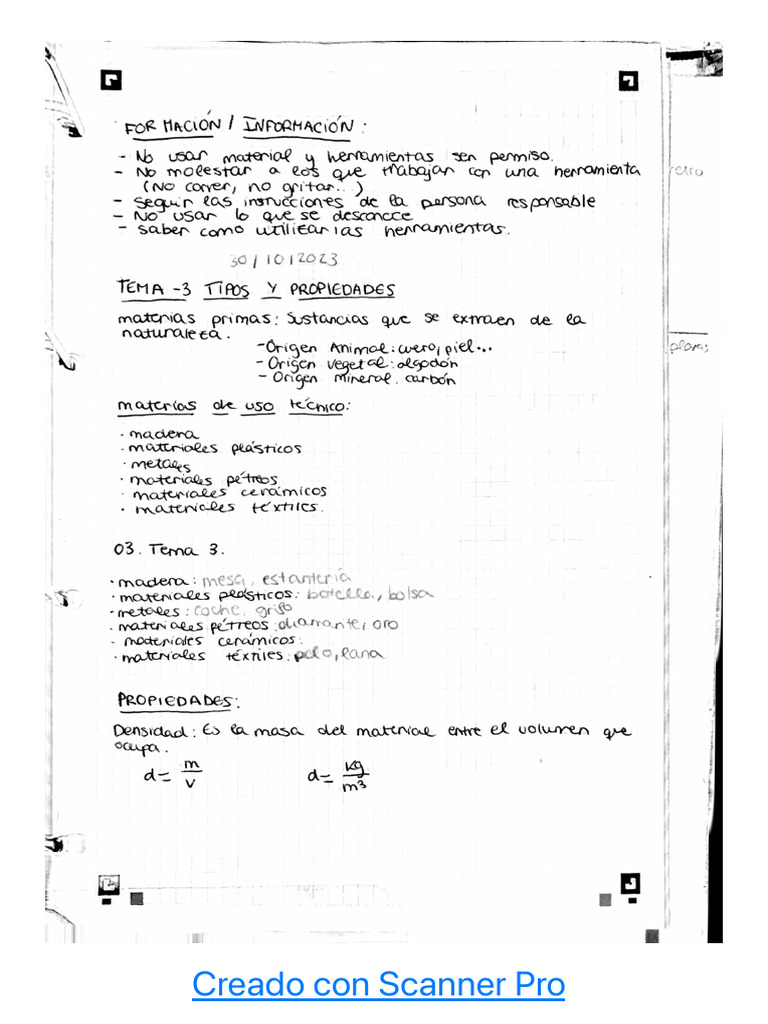 FORMACIÓN / INFORMACIÓN:
- No usar material y herramientas sen permiso.
- No molestar a los que trabajan con una herramienta
(No correr, no gritar...)
- Seguir las instrucciones de la persona responsable
- No usar lo que se desconoce
- Saber como utilizar las herramientas.
30/10/2023
TEMA -3 TIPOS Y PROPIEDADES
materias primas: Sustancias que se extraen de la
naturaleza.
- Origen Animal: cuero, piel...
- Origen vegetal: algodón
- Origen mineral. carbón
materias de uso técnico:
· madera
· materiales plásticos
· metales
· materiales pétreos
· materiales cerámicos
· materiales téxtiles.
03. Tema 3.
· madera: mesa, estantería
· materiales plásticos: botella, bolsa
· metales: coche, grifo
· materiales pétreos: diamante, oro
- materiales cerámicos:
· materiales téxtiles: pelo, lana
PROPIEDADES:
Densidad: Es la masa del material entre el volumen que
ocupa.
d= m/v d= kg/m³
Creado con Scanner Pro